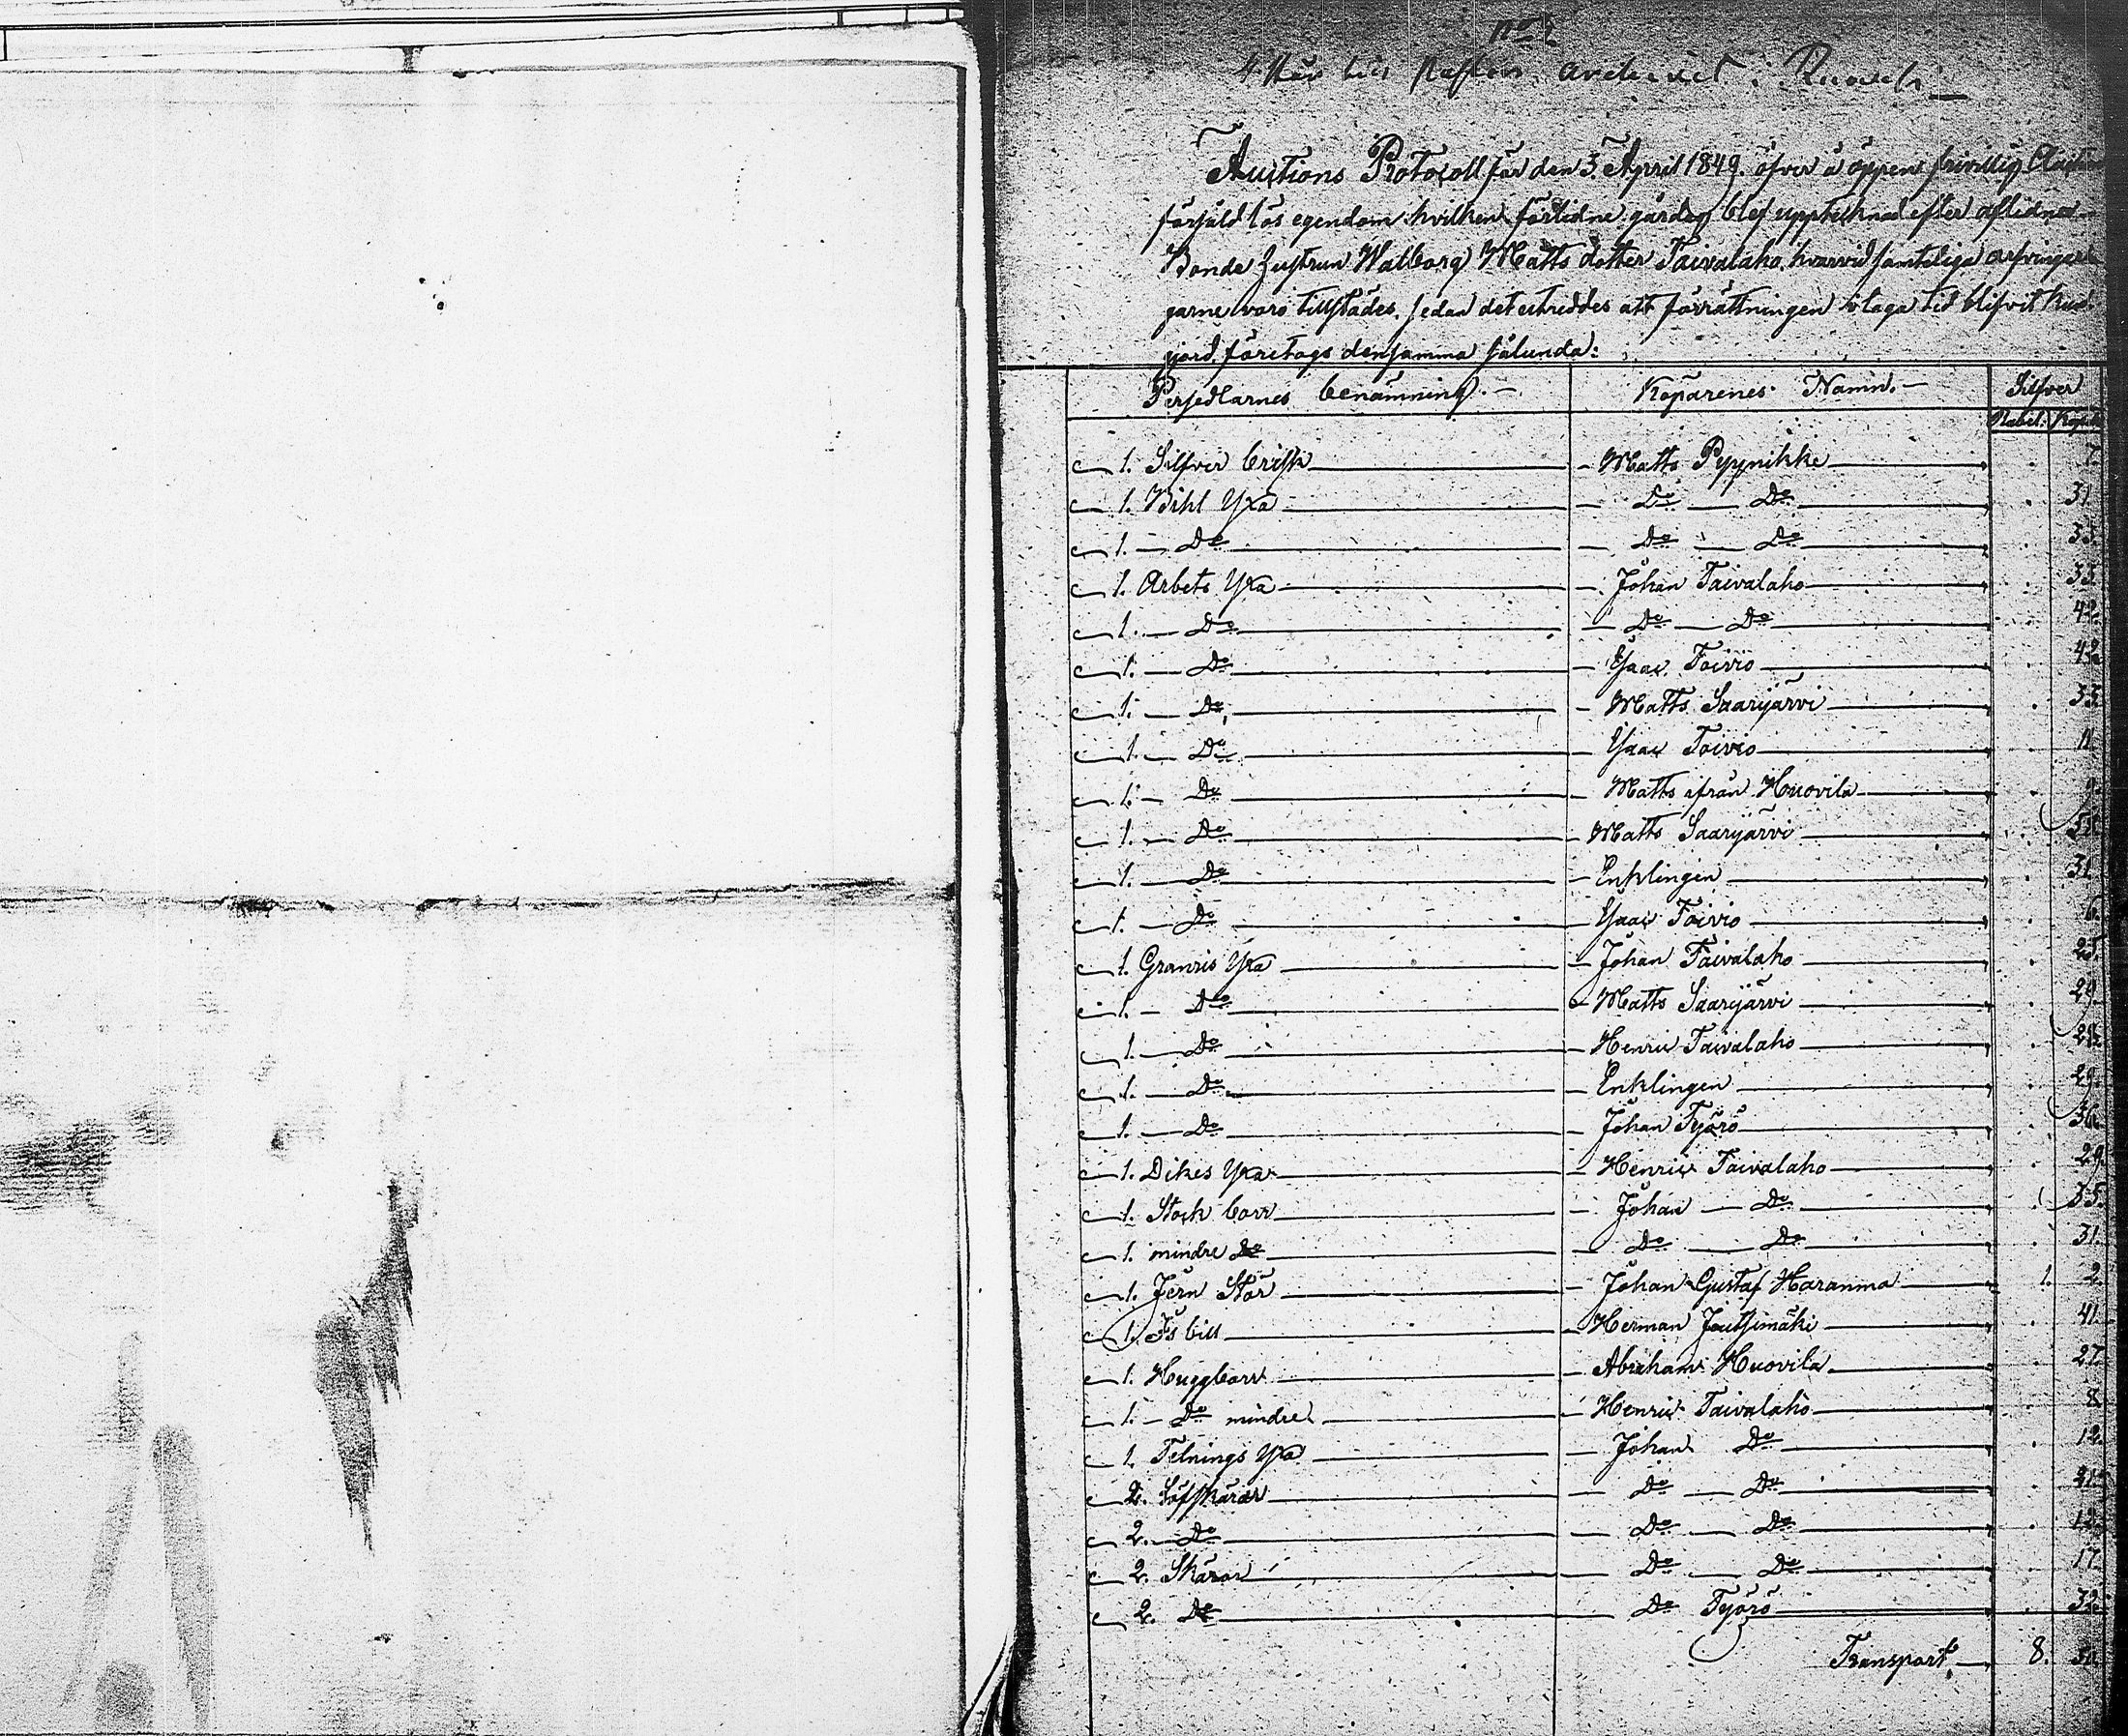 Auctions Protocoll för den 3 April 1849. öfver å öppen frivillig
försåld lös egendom hvilken förlidne gårdag blef upptecknad efter aflidna
Bonde hustrun Walborg Matts dotter Taivalaho, hvarvid samteliga arfvingar
garne voro tillstädes, sedan det utreddes att förrättningen i laga tid blifvit
gjord, företogs densamma sålunda:
Persedlarnes benämning.— Köparenes Namn.— Silfver
Rubel. Kopek
1. Silfver brisk — Matts Pyynikke 7.
1. Bihl Yxa — Do — Do 31
1. — Do — Do — Do 33.
1. Arbets Yxa — Johan Taivalaho 33
1. — Do — Do — Do 42.
1. — Do — Isaac Toivio 42.
1. — Do — Matts Saarijärvi 33
1. — Do — Isaac Toivio 11
1. — Do — Matts ifrån Huovila 9.
1. — Do — Matts Saarijärvi
1. — Do — Enklingen 31
1. — Do — Isaac Toivio 6.
1. Granris Yxa — Johan Taivalaho 25.
1. — Do — Matts Saarijärvi 29.
1. — Do — Henric Taivalaho
1. — Do — Enklingen 29.
1. — Do — Johan Työrö 36.
1. Dikes Yxa — Henric Taivalaho 29.
1. Stock borr — Johan — Do 35.
1. mindre Do — Do — Do 31.
1. Jern Stör — Johan Gustaf Haranma 1. 2.
1. Is bill — Herman Joutsimäki 41.
1. Huggborr — Abraham Huovila 27.
1. — Do mindre — Henric Taivalaho 8.
1. Telnings Yxa — Johan Do 12.
2. Löfskäror — Do — Do
2. — Do — Do — Do 12.
2. Skäror — Do — Do 17.
2. Do — Do Työrö 32.
Transport — 8.